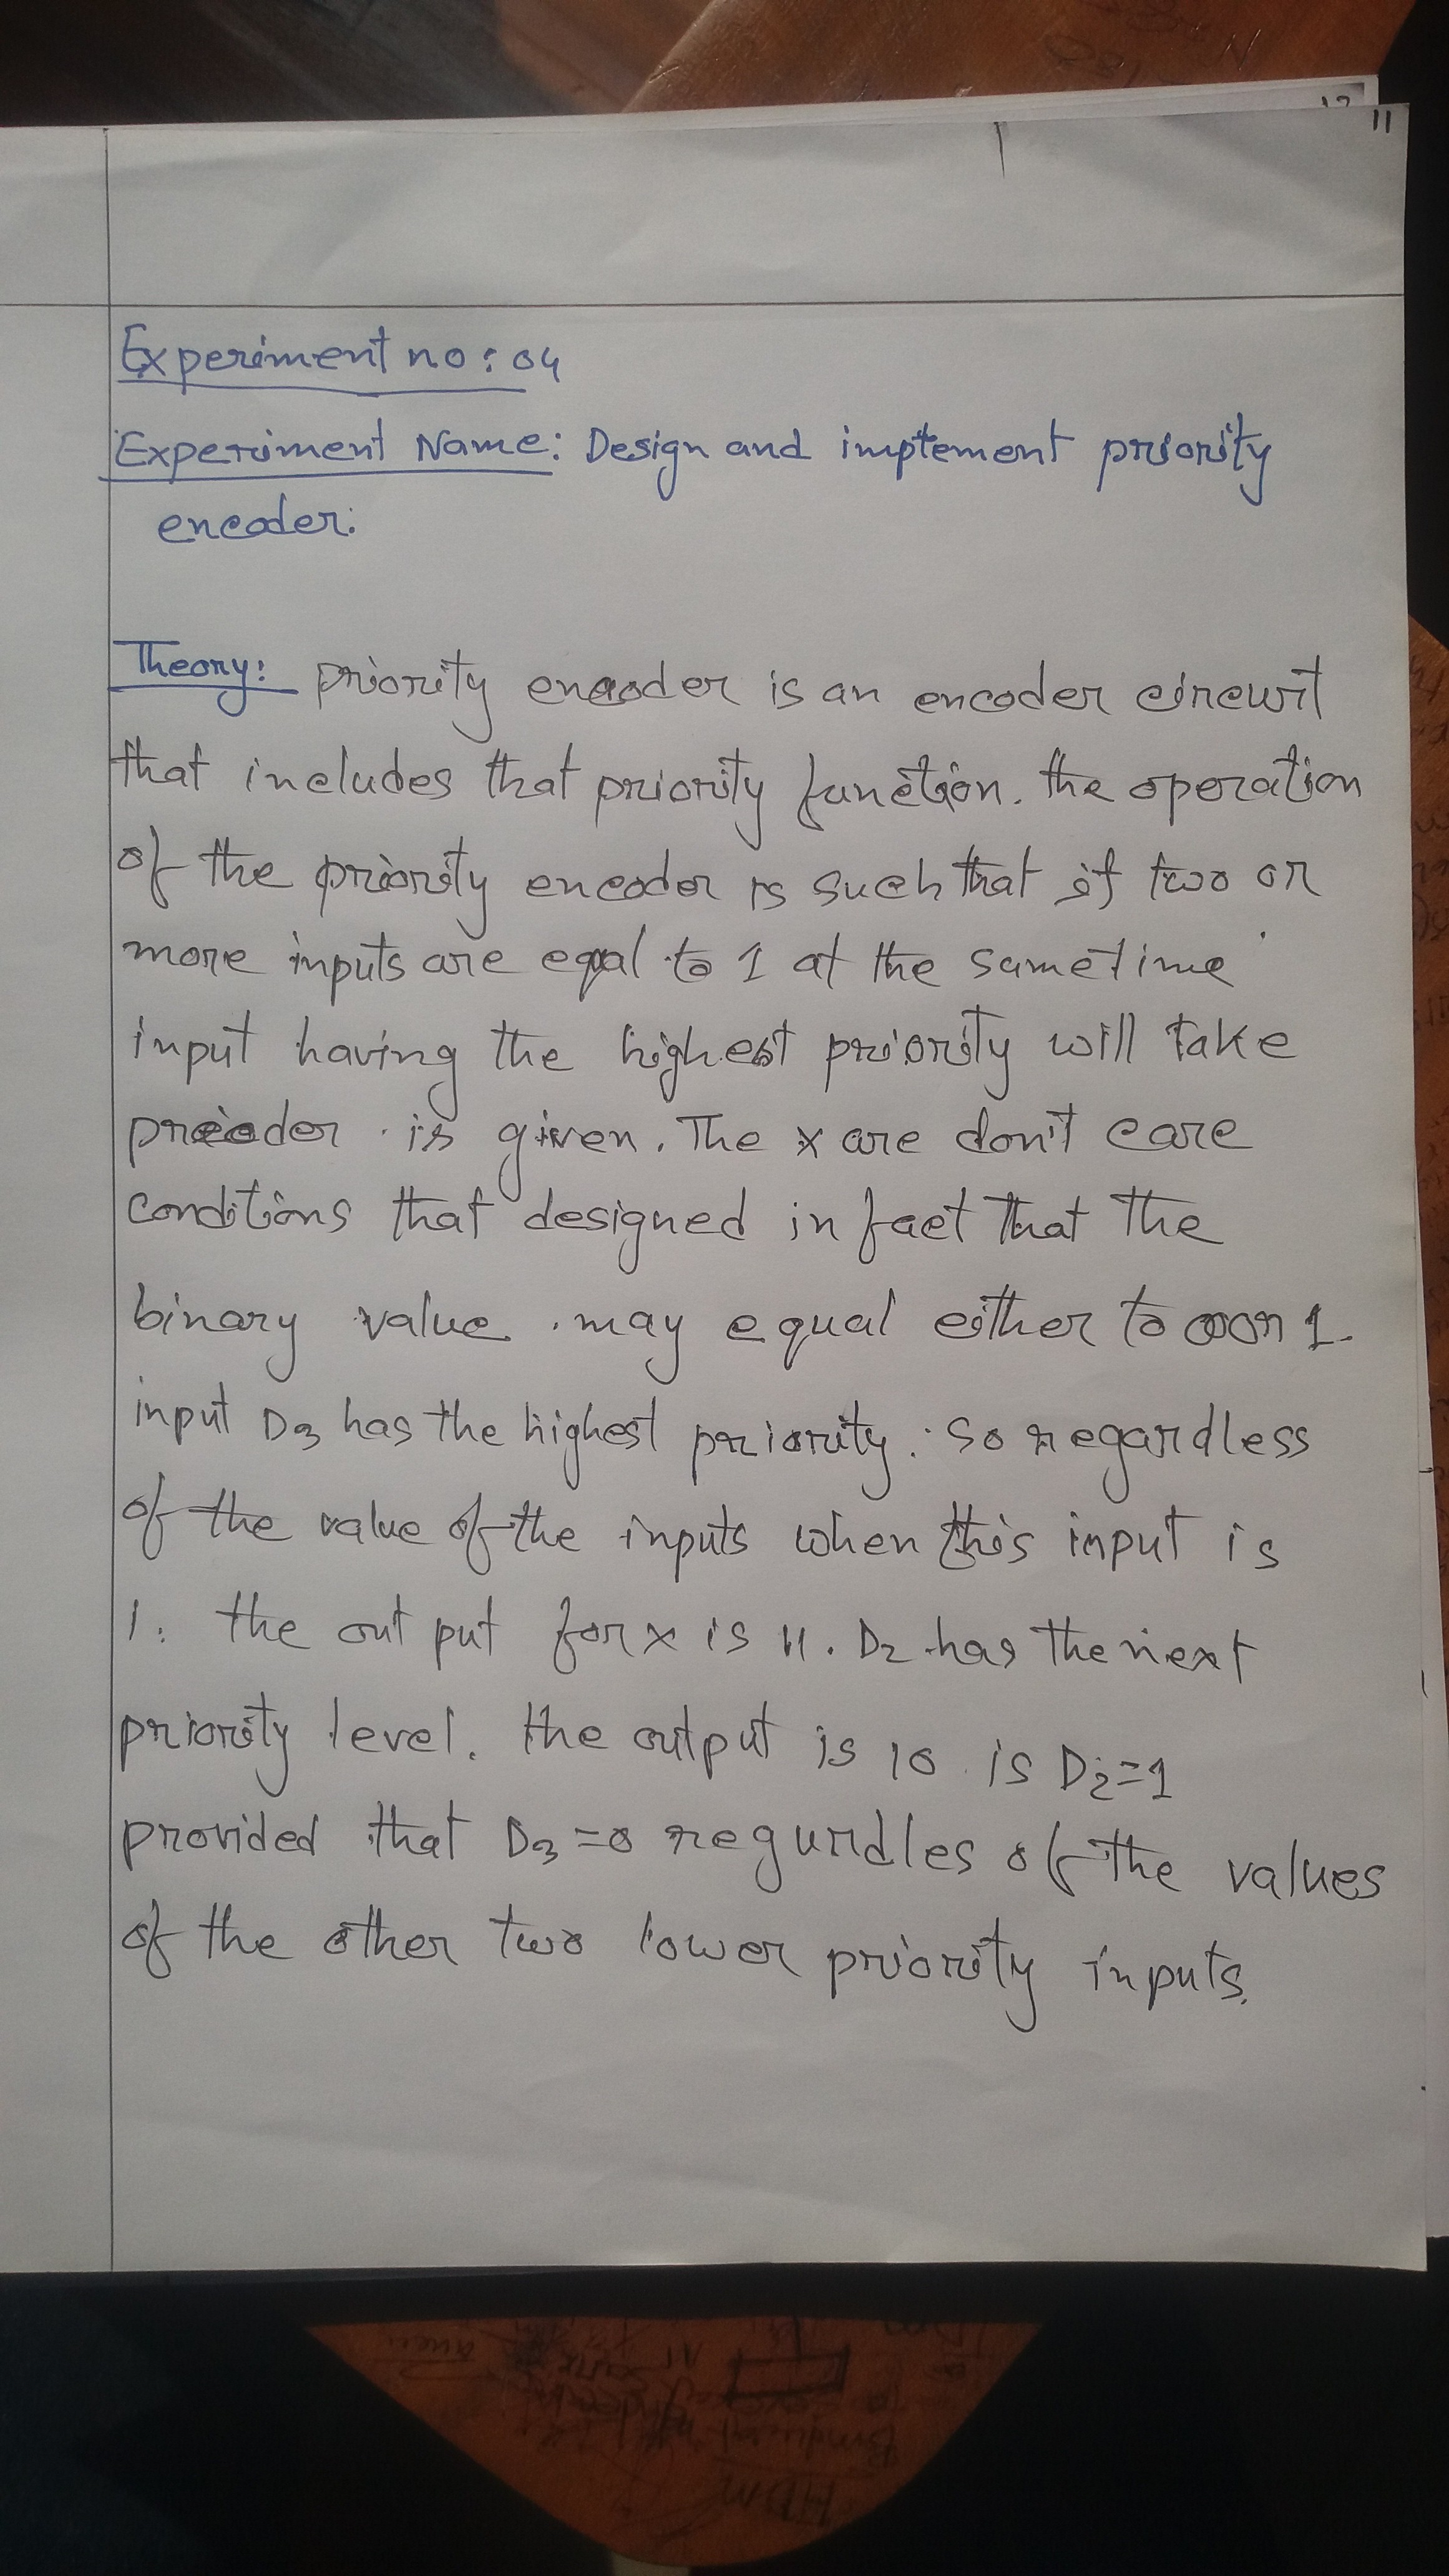 11
Experiment no: 04
Experiment Name: Design and implement priority
encoder.
Theory: priority encoder is an encoder circuit
that includes that priority function. the operation
of the priority encoder is such that if two or
more inputs are equal to 1 at the same time
input having the highest priority will take
is given. The x are don't care
conditions that designed in fact that the
binary value may equal either to 0 or 1.
input D3 has the highest priority. So regardless
of the value of the inputs when this input is
1. the out put for x is 11. D2 has the next
priority level. the output is 10 is D2=1
provided that D3=0 regurdles of the values
of the other two lower priority inputs.